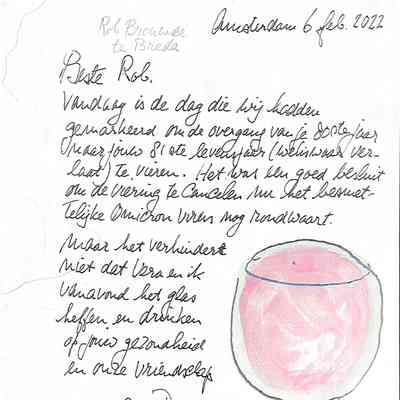 Rob Brouwer
te Breda
Amsterdam 6 feb. 2022
Beste Rob.
Vandaag is de dag die wij hadden
gemarkeerd om de overgang van je 80ste jaar
naar jouw 81ste levensjaar (weliswaar ver-
laat) te vieren. Het was een goed besluit
om de viering te Cancelen nu het besmet-
telijke Omicron virus nog rondwaart.
Maar het verhindert
niet dat Vera en ik
vanavond het glas
heffen en drinken
op jouw gezondheid
en onze vriendschap